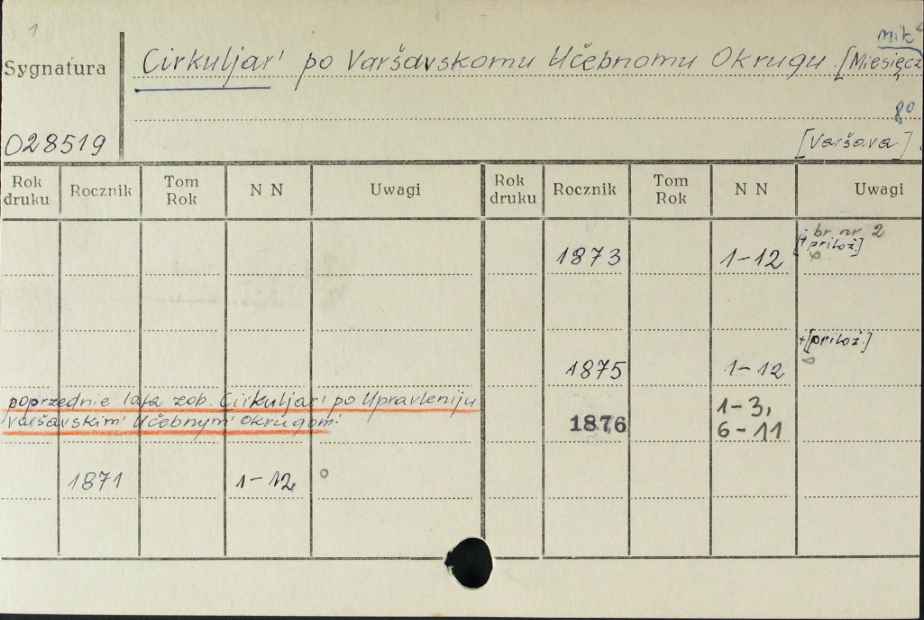 1
mik
Sygnatura Cirkuljar' po Varšavskomu Učebnomu Okrugu [Miesięcz
8°
028519 [Varšava].
Rok druku Rocznik Tom Rok N N Uwagi Rok druku Rocznik Tom Rok N N Uwagi
br. nr 2
1873 1-12 [+priłož]
1875 1-12 +[priłož.]
poprzednie lata zob. Cirkuljar' po Upravleniju
Varšavskim' Učebnym' Okrugom'
1876 1-3,
6-11
1871 1-12 °